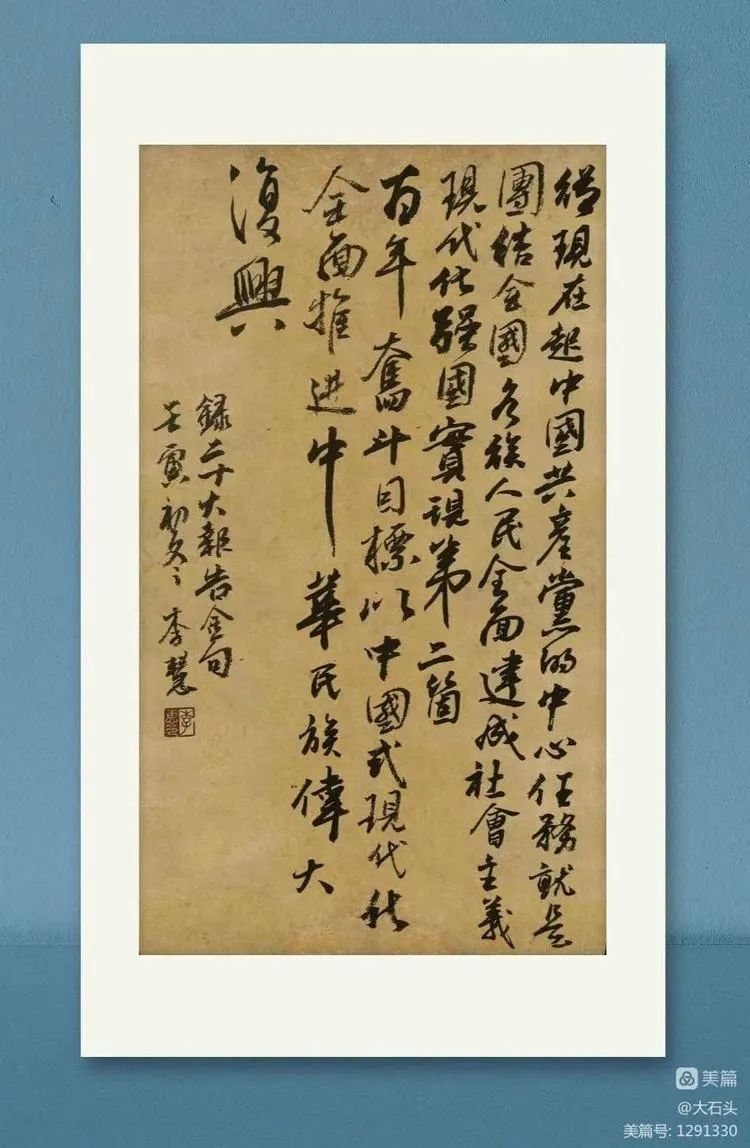 從現在起中國共產黨的中心任務就是
團結全國各族人民全面建成社會主義
現代化强國實現第二箇
百年奮斗目標以中國式現代化
全面推進中華民族偉大
復興
錄二十大報告金句
壬寅初冬李慧
美篇
@大石头
美篇号: 1291330